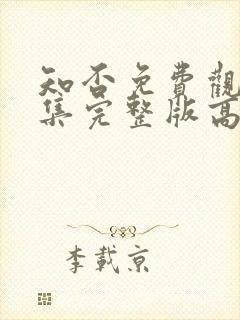 知否免費觀
集完整版高
李載京